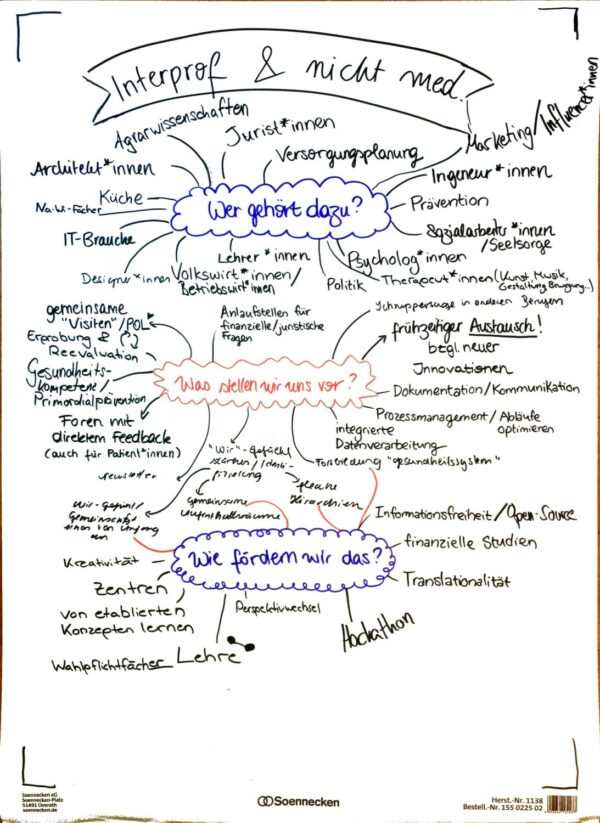 Interprof & nicht med.
Agrarwissenschaften
Jurist*innen
Versorgungsplanung
Marketing/Influencer*innen
Architekt*innen
Ingeneur*innen
Küche
Na.Wi-Fächer
Wer gehört dazu?
Prävention
IT-Branche
Sozialarbeiter*innen
/Seelsorge
Lehrer*innen
Psycholog*innen
Designer*innen
Volkswirt*innen/
Betriebswirt*innen
Politik
Therapeut*innen (Kunst, Musik,
Gestaltung, Bewegung...)
gemeinsame
"Visiten"/POL
Erprobung &
Reevaluation
Anlaufstellen für
finanzielle/juristische
Fragen
Schnuppertage in anderen Berufen
frühzeitiger Austausch!
bzgl. neuer
Innovationen
Gesundheits-
kompetenz/
Primordialprävention
Was stellen wir uns vor?
Dokumentation/Kommunikation
Prozessmanagement/Abläufe
optimieren
Foren mit
direktem Feedback
(auch für Patient*innen)
integrierte
Datenverarbeitung
"Wir"-Gefühl
stärken/Identi-
fizierung
Fortbildung "gesundheitssystem"
newsletter
flache
Hierarchien
gemeinsame
Aufenthaltsräume
Wir-Gefühl/
Gemeinschafts
sinn von Anfang
an
Informationsfreiheit/Open-Source
Wie fördern wir das?
finanzielle Studien
Kreativität
Translationalität
Zentren
von etablierten
Konzepten lernen
Perspektivwechsel
Hackathon
Wahlpflichtfächer
Lehre
Soennecken eG
Soennecken-Platz
51491 Overath
soennecken.de
Soennecken
Herst.-Nr. 1138
Bestell.-Nr. 155 0225 02